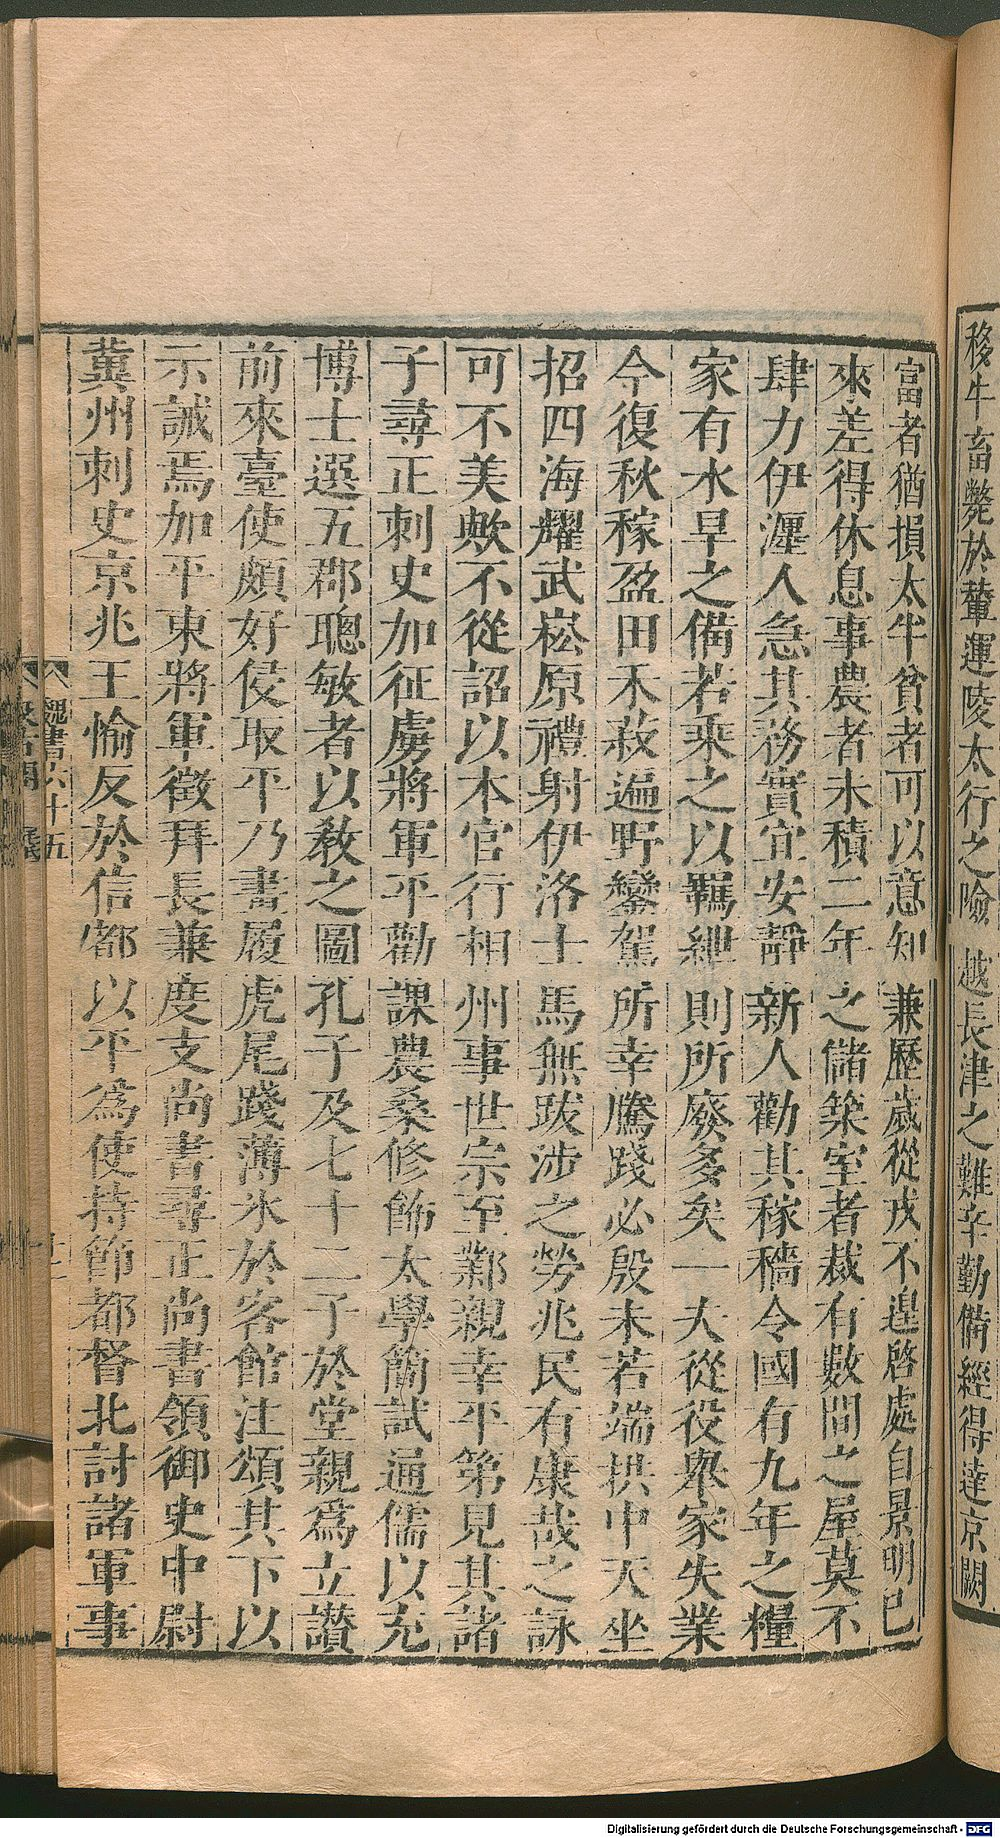 移牛畜斃於輦運陵太行之險越長津之難辛勤備經得達京闕
富者猶損太半貧者可以意知兼歷歲從戎不遑啓處自景明已
來差得休息事農者未積二年之儲築室者裁有數間之屋莫不
肆力伊瀍人急其務實宜安靜新人勸其稼穡令國有九年之糧
家有水旱之備若乘之以羈紲則所廢多矣一夫從役舉家失業
今復秋稼盈田禾菽遍野鑾駕所幸騰踐必殷未若端拱中天坐
招四海耀武崧原禮射伊洛士馬無跋涉之勞兆民有康哉之詠
可不美歟不從詔以本官行相州事世宗至鄴親幸平第見其諸
子尋正刺史加征虜將軍平勸課農桑修飾太學簡試通儒以充
博士選五郡聰敏者以教之圖孔子及七十二子於堂親爲立讃
前來臺使頗好侵取平乃畫履虎尾踐薄氷於客館注頌其下以
示誡焉加平東將軍徵拜長兼度支尚書尋正尚書領御史中尉
冀州刺史京兆王愉反於信都以平爲使持節都督北討諸軍事
魏書六十五
Digitalisierung gefördert durch die Deutsche Forschungsgemeinschaft - DFG